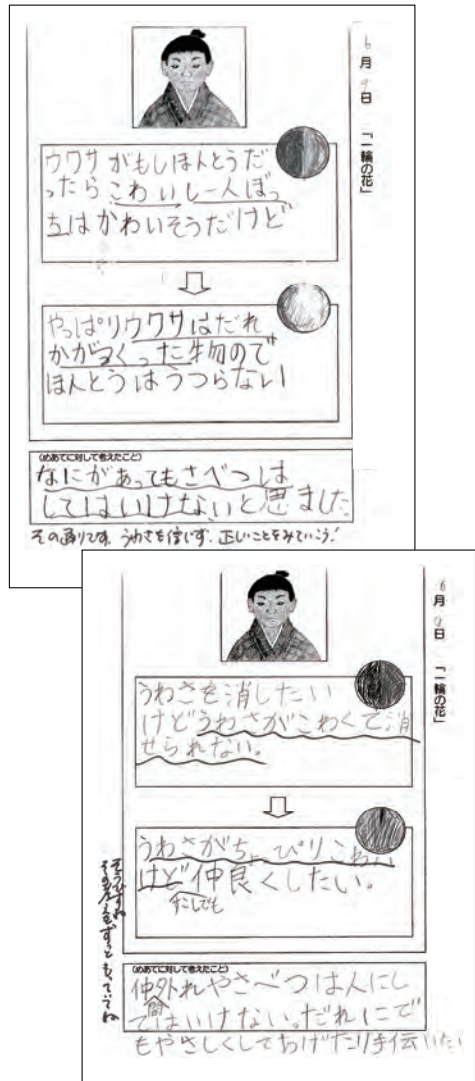 6月9日 「一輪の花」
ウワサがもしほんとうだ
ったらこわいし一人ぼっ
ちはかわいそうだけど
やっぱりウワサはだれ
かがつくった物ので
ほんとうはうつらない
(めあてに対して考えたこと)
なにがあってもさべつは
してはいけないと思ました。
その通りです。うわさを信じず、正しいことをみていこう!
月 日 「一輪の花」
うわさを消したい
けどうわさがこわくて消
せられない。
うわさがちょっぴりこわい
けど仲良くしたい。
すこしでも
そうですね
その考えをずっともっていてね
(めあてに対して考えたこと)
仲間外れやさべつは人にし
てはいけない。だれにで
もやさしくしてあげたり手伝いたい